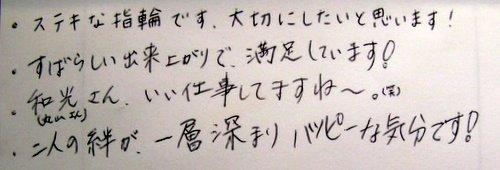 ・ステキな指輪です、大切にしたいと思います!
・すばらしい出来上がりで、満足しています!
・和光さん、いい仕事してますね〜。(笑)
・二人の絆が、一層深まりハッピーな気分です!